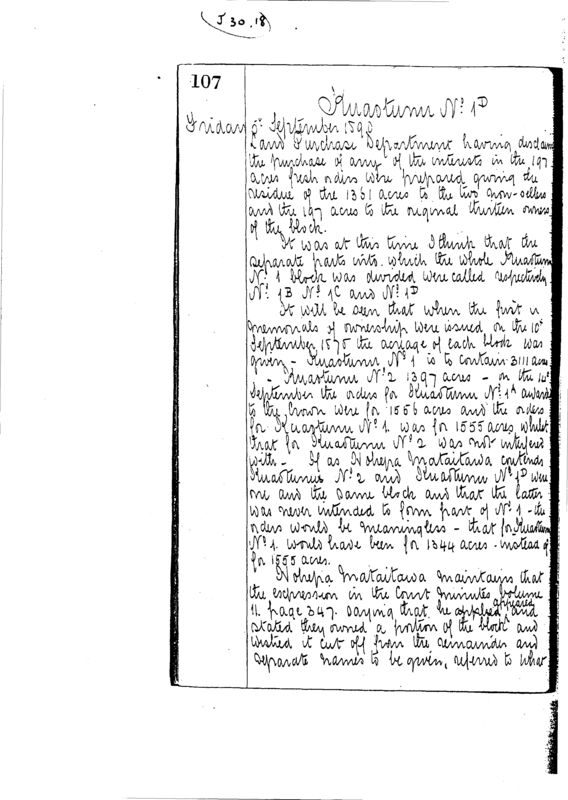 J 30.18
107
Kuaotunu No. 1D
Friday 5th September 1890
Land Purchase Department having disclaimed
the purchase of any of the interests in the 197
acres fresh orders were prepared giving the
residue of the 1361 acres to the two non-sellers
and the 197 acres to the original thirteen owners
of the block.
It was at this time I think that the
separate parts into which the whole Kuaotunu
No. 1 block was divided were called respectively
No. 1B No. 1C and No. 1D
It will be seen that when the first
memorials of ownership were issued on the 10th
September 1878 the acreage of each block was
given - Kuaotunu No. 1 is to contain 3111 acres
- Kuaotunu No. 2 1397 acres - on the 14th
September the orders for Kuaotunu No. 1A awarded
to the Crown were for 1556 acres and the orders
for Kuaotunu No. 1. was for 1555 acres whilst
that for Kuaotunu No. 2 was not interfered
with - If as Nohepa Mataitawa contends
Kuaotunu No. 2 and Kuaotunu No. 1D were
one and the same block and that the latter
was never intended to form part of No. 1 - the
orders would be meaningless - that for Kuaotunu
No. 1. would have been for 1344 acres instead of
for 1555 acres.
Nohepa Mataitawa maintains that
the expression in the Court minutes volume
11. page 347. saying that he applied appeared and
stated they owned a portion of the block and
wished it cut off from the remainder and
separate names to be given, referred to what